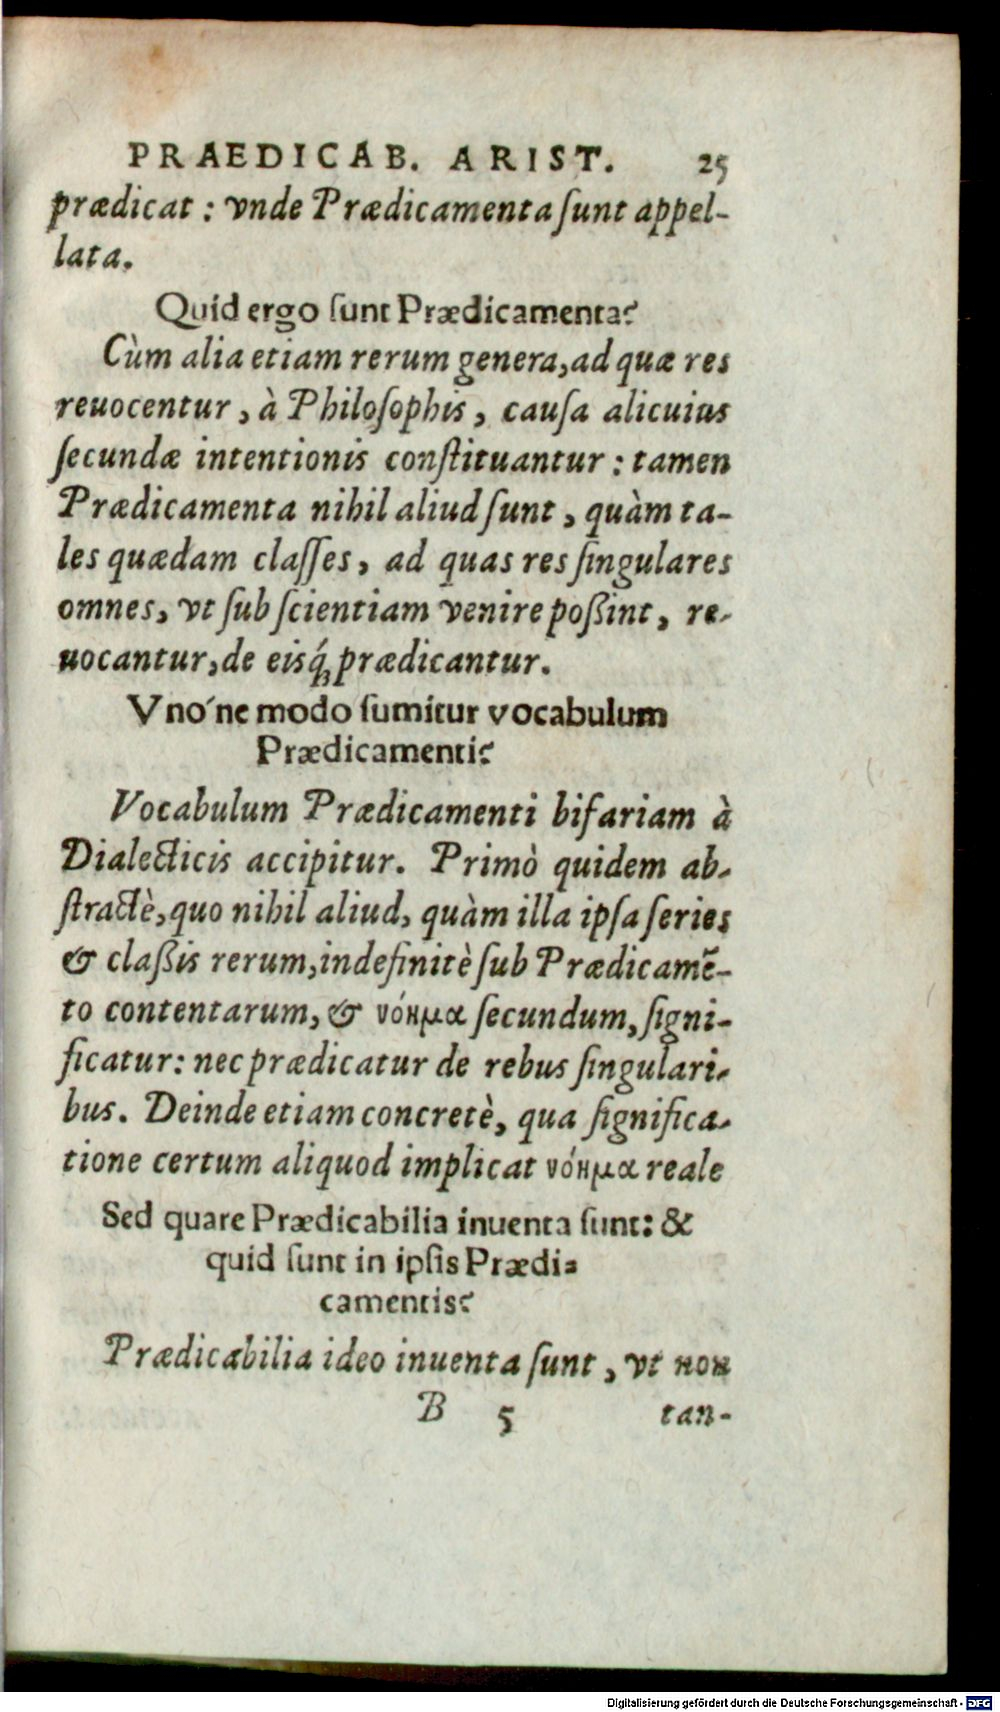 PRAEDICAB. ARIST. 25
prædicat : vnde Prædicamenta ſunt appel-
lata.
Quid ergo ſunt Prædicamenta?
Cùm alia etiam rerum genera, ad quæ res
reuocentur, à Philoſophis, cauſa alicuius
ſecundæ intentionis conſtituantur : tamen
Prædicamenta nihil aliud ſunt, quàm ta-
les quædam claſſes, ad quas res ſingulares
omnes, vt ſub ſcientiam venire poßint, re-
uocantur, de eisq́; prædicantur.
Vno´ne modo ſumitur vocabulum
Prædicamenti?
Vocabulum Prædicamenti bifariam à
Dialecticis accipitur. Primò quidem ab-
ſtractè, quo nihil aliud, quàm illa ipſa ſeries
& claßis rerum, indefinitè ſub Prædicamẽ-
to contentarum, & νόημα ſecundum, ſigni-
ficatur: nec prædicatur de rebus ſingulari-
bus. Deinde etiam concretè, qua ſignifica-
tione certum aliquod implicat νόημα reale
Sed quare Prædicabilia inuenta ſunt: &
quid ſunt in ipſis Prædi-
camentis?
Prædicabilia ideo inuenta ſunt, vt non
B 5 tan-
Digitalisierung gefördert durch die Deutsche Forschungsgemeinschaft - DFG